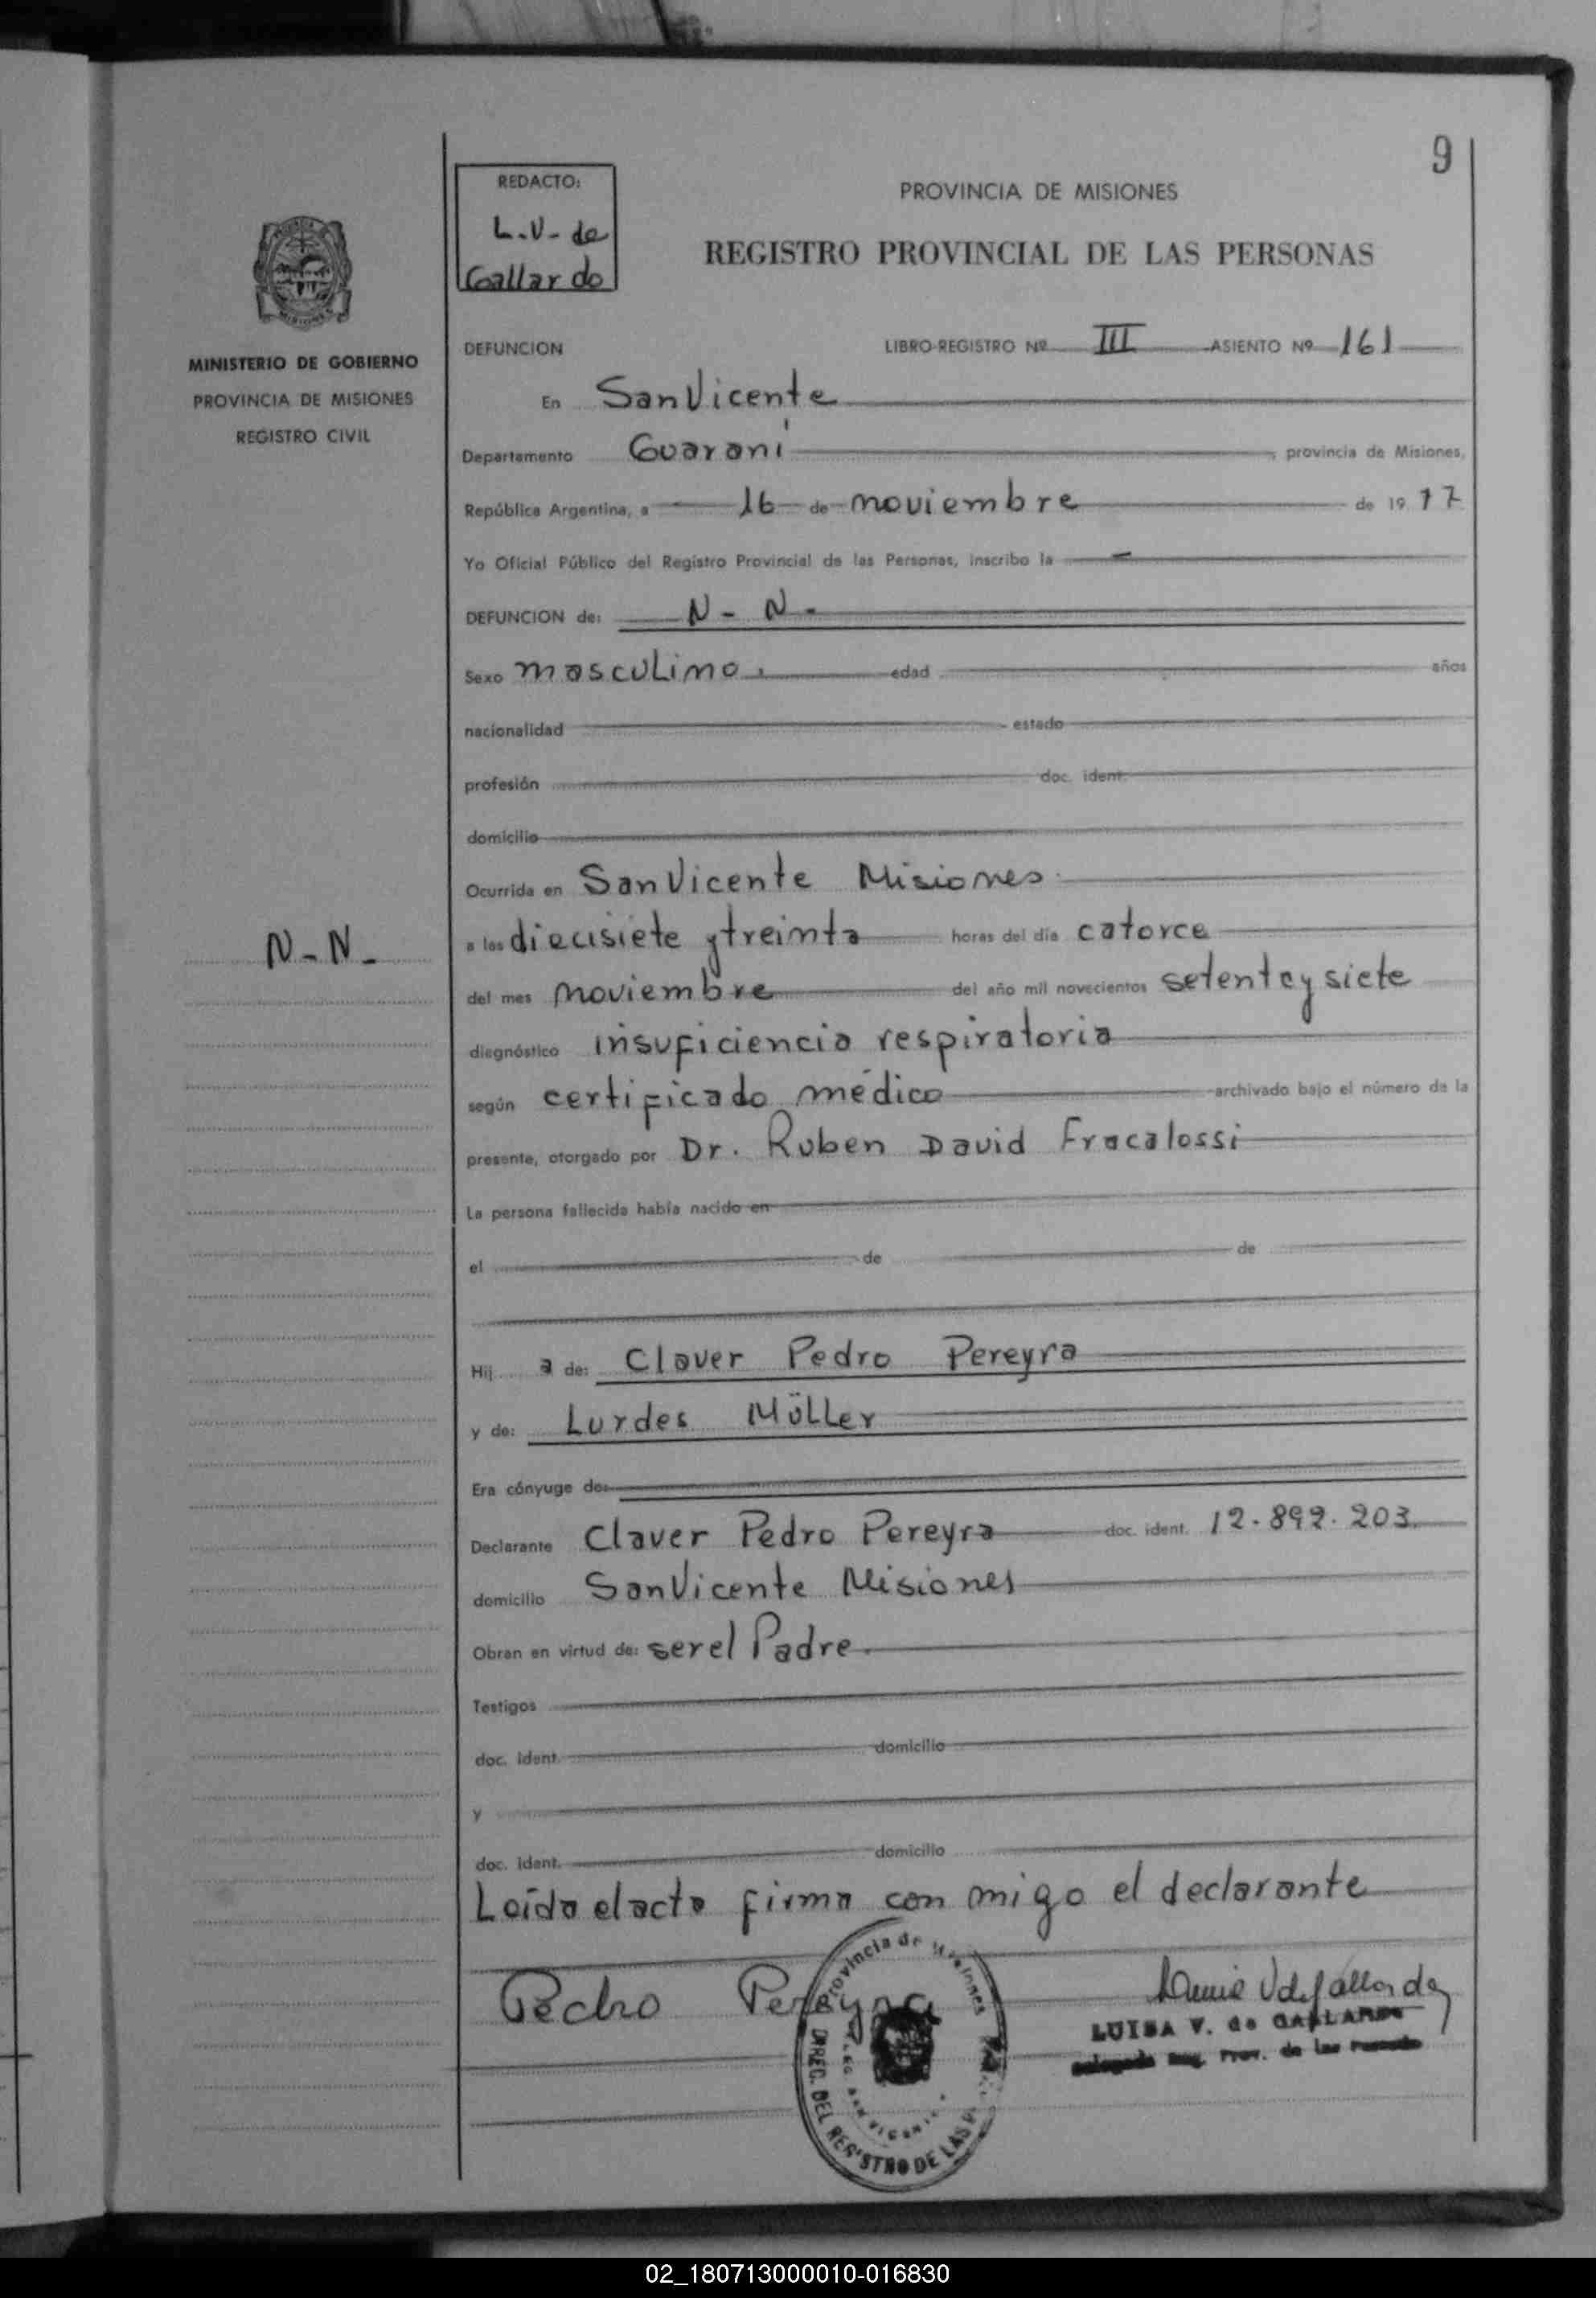 9
REDACTO:
L.V. de
Gallardo
PROVINCIA DE MISIONES
REGISTRO PROVINCIAL DE LAS PERSONAS
MINISTERIO DE GOBIERNO
PROVINCIA DE MISIONES
REGISTRO CIVIL
DEFUNCION LIBRO-REGISTRO Nº III ASIENTO Nº 161
En San Vicente
Departamento Guaraní, provincia de Misiones,
República Argentina, a 16 de noviembre de 19 77
Yo Oficial Público del Registro Provincial de las Personas, inscribo la
DEFUNCION de: N - N -
Sexo masculino. edad años
nacionalidad estado
profesión doc. ident.
domicilio
Ocurrida en San Vicente Misiones.
N - N -
a las diecisiete y treinta horas del día catorce
del mes noviembre del año mil novecientos setenta y siete
diagnóstico insuficiencia respiratoria
según certificado médico archivado bajo el número de la
presente, otorgado por Dr. Ruben David Fracalossi
La persona fallecida había nacido en
el de de
Hij a de: Claver Pedro Pereyra
y de: Lurdes Müller
Era cónyuge de:
Declarante Claver Pedro Pereyra doc. ident. 12.892.203.
domicilio San Vicente Misiones
Obran en virtud de: ser el Padre.
Testigos
doc. ident. domicilio
y
doc. ident. domicilio
Leída el acta firma con migo el declarante
Pedro Pereyra
Provincia de Misiones
DIREC. DEL REGISTRO DE LAS
SAN VICENTE
LUISA V. de GALLARDO
Delegada Reg. Prov. de las Personas
02_180713000010-016830